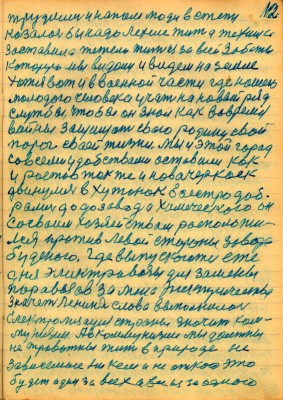 12
трузиям и напом люди в степи
казалось бы надо Ленье жит а теперь и
заставила теперь жить и за всей заботы
которую мы видем и видем на земле
хотя вот и в военной части где нашего
молодого человека учат на новый ряд
службы, чтобы он знал как во время
вайны защищат свою родину свой
порог своей жизни. мы и этот город
со всеми удобствами оставили как
и ростов так же и новочеркаск
двинулись в хуторок быстро доб.
рались до завода химического он
со своим хозяйством расположи-
лся против левой стороны завода
будёного. Где выпускают еже
дня электровозы для замены
паравозов за место электричества
значет Ленина слова выполнились
електрофикация страны значит ком-
мунизм. А в коммунизме мы должны
жит в природе не
зависемые ни кем и не от кого это
будет один за всех а все за одного